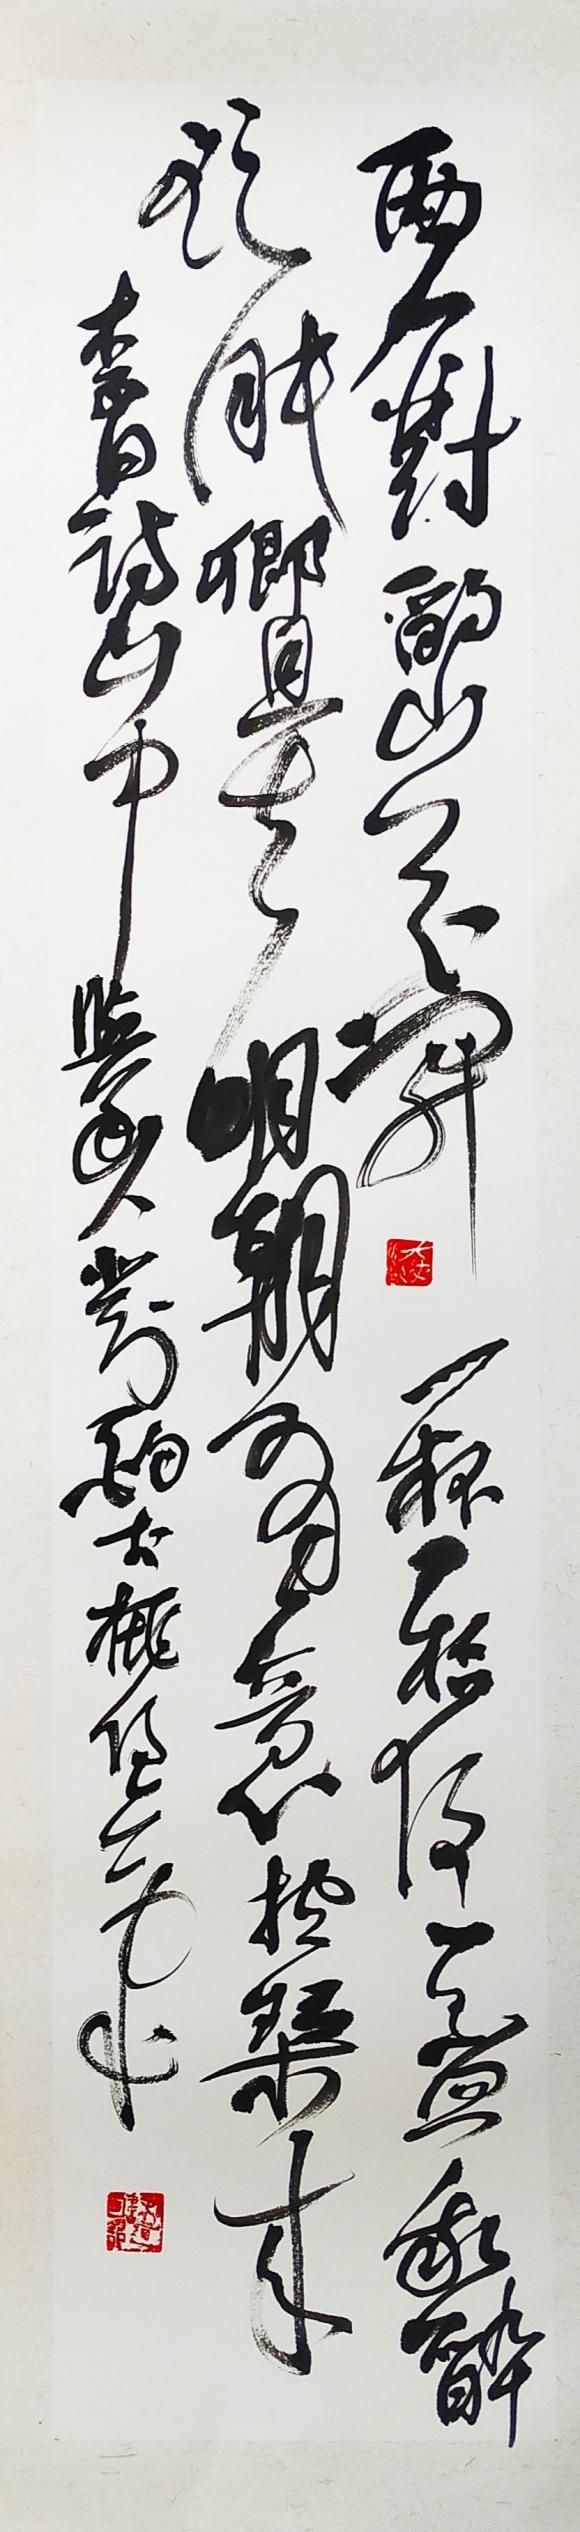 兩人對酌山花開一杯一杯復一盃我醉
欲眠卿且去明朝有意抱琴來
李白詩山中人對酌